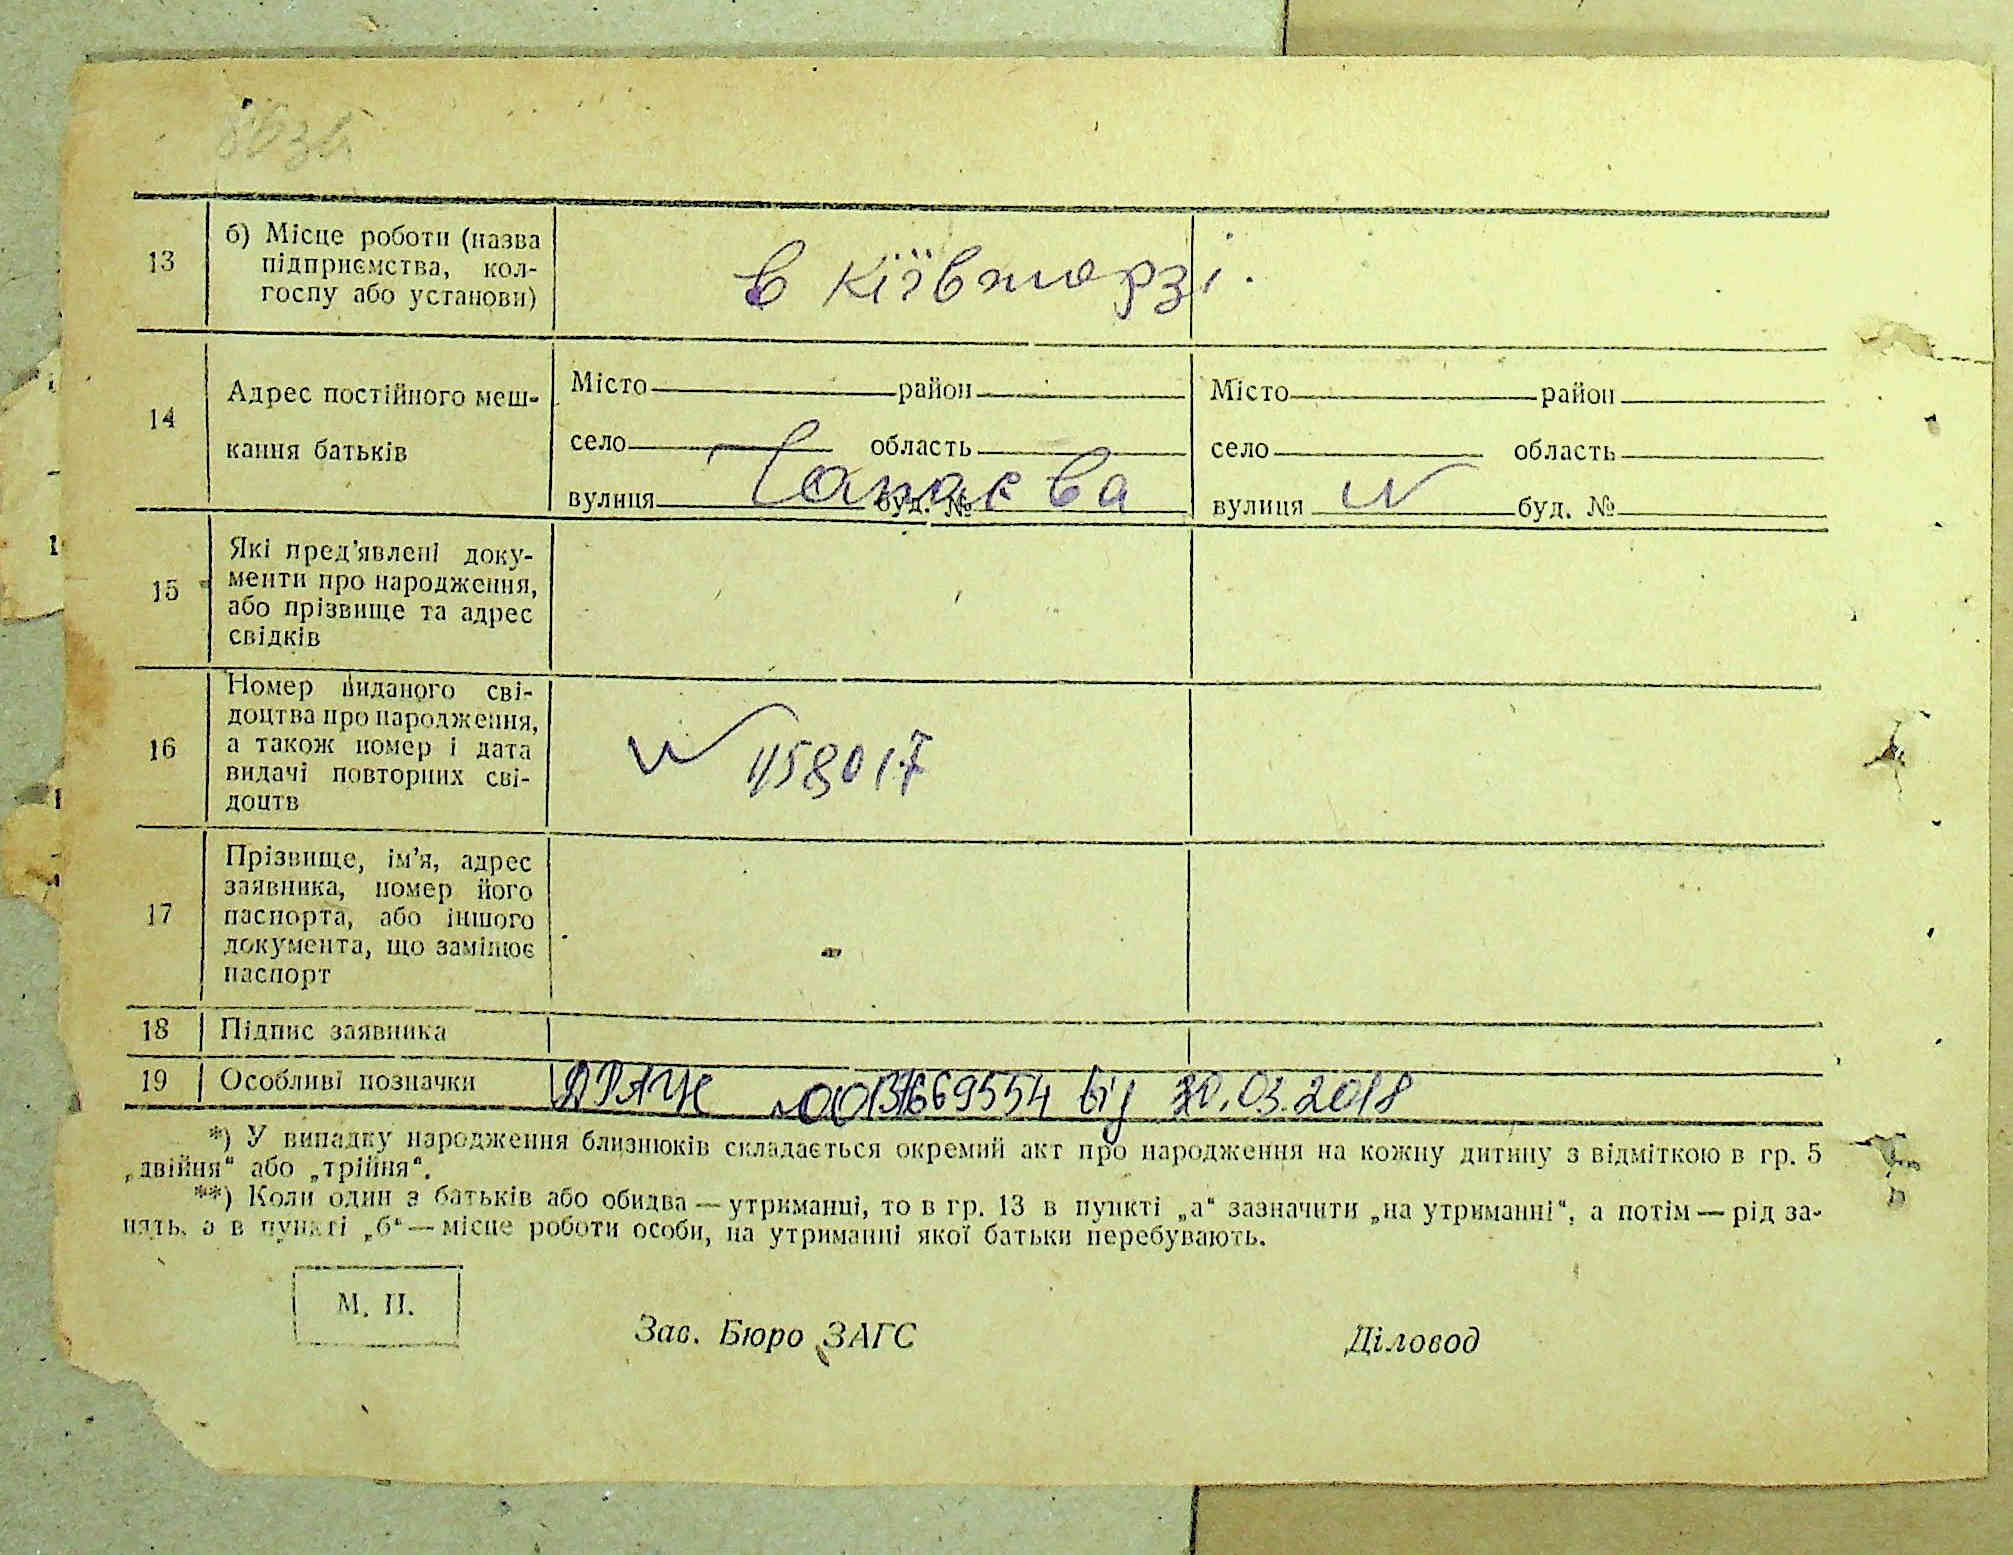 13
б) Місце роботи (назва
підприємства, кол-
госпу або установи)
в Київторзі.
14
Адрес постійного меш-
кання батьків
Місто район
село область
вулиця Чапаєва буд. №
Місто район
село область
вулиця буд. №
15
Які пред’явлені доку-
менти про народження,
або прізвище та адрес
свідків
16
Номер виданого сві-
доцтва про народження,
а також номер і дата
видачі повторних сві-
доцтв
№ 1158017
17
Прізвище, ім’я, адрес
заявника, номер його
паспорта, або іншого
документа, що замінює
паспорт
18
Підпис заявника
19
Особливі позначки
від 20.03.2018
*) У випадку народження близнюків складається окремий акт про народження на кожну дитину з відміткою в гр. 5
„двійня“ або „трійня“.
**) Коли один з батьків або обидва — утриманці, то в гр. 13 в пункті „а“ зазначити „на утриманні“, а потім — рід за-
нять, а в пункті „б“ — місце роботи особи, на утриманні якої батьки перебувають.
М. П.
Зав. Бюро ЗАГС
Діловод